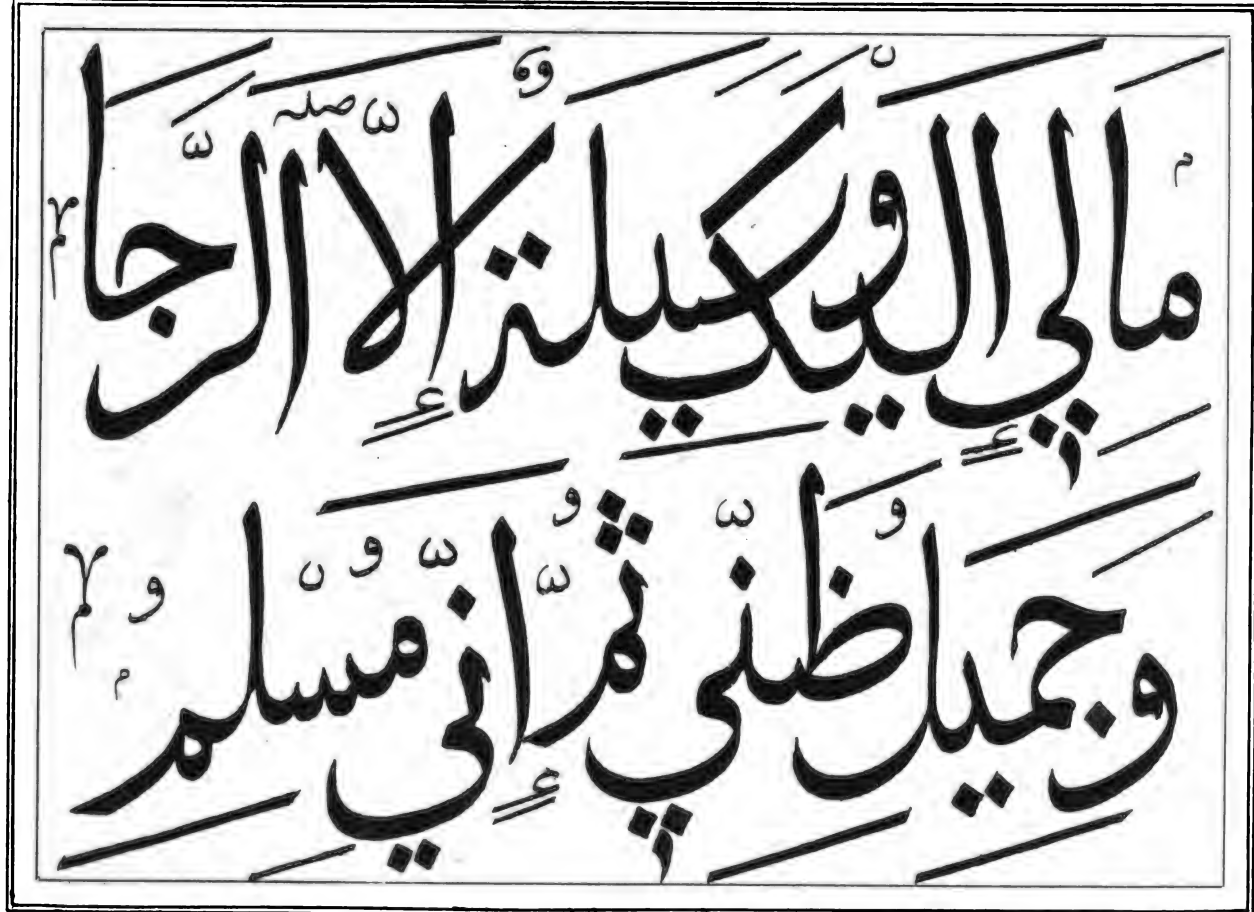 مَا لِي إِلَيْكَ وَسِيلَةٌ إِلَّا الرَّجَا
وَجَمِيلُ ظَنِّي ثُمَّ إِنِّي مُسْلِمُ